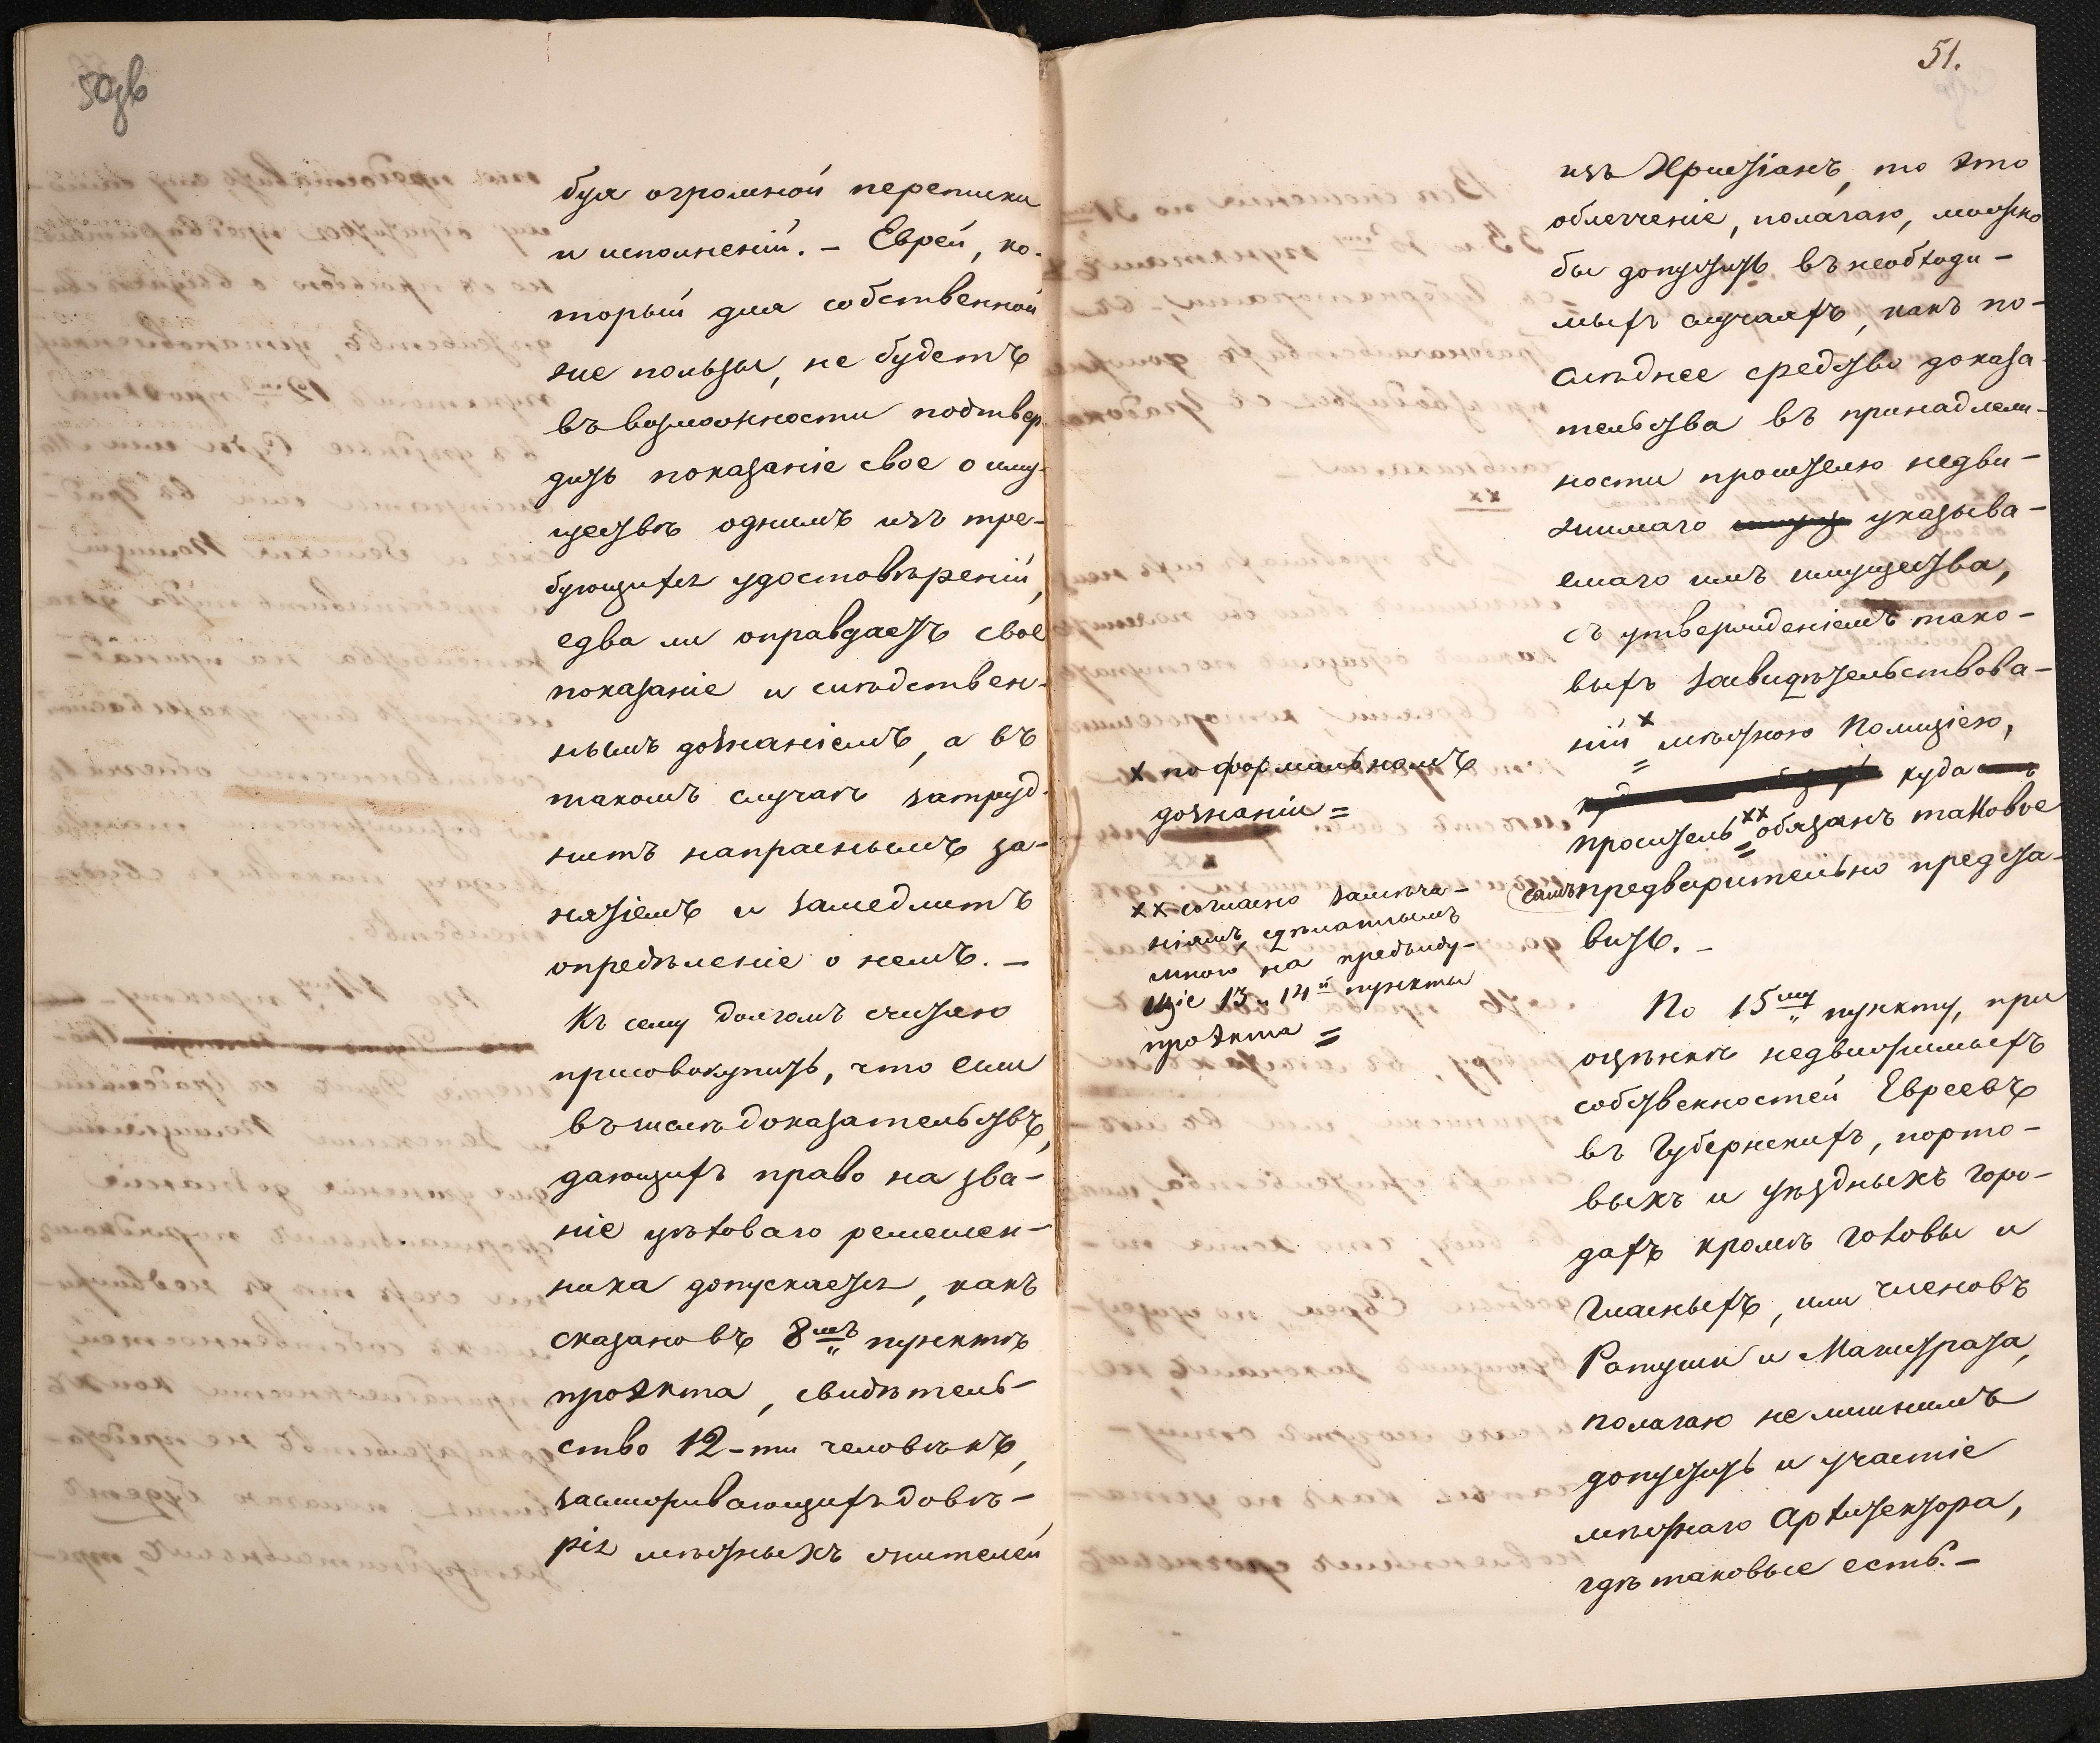 50об
буя огромной переписки
и исполненій. – Еврей, ко-
торый для собственной
же пользы, не будетъ
въ возможности подтвер
дить показаніе свое о иму-
ществѣ однимъ изъ тре-
бующихся удостовѣреній,
едва ли оправдаетъ свое
показаніе и слѣдствен-
нымъ дознаніемъ, а въ
такомъ случаѣ затруд-
нитъ напраснымъ за-
нятіемъ и замедлитъ
опредѣленіе о немъ. –
Къ сему долгомъ считаю
присовокупить, что если
въ числѣ доказательствъ,
дающихъ право на зва-
ніе цѣховаго ремеслен-
ника допускается, какъ
сказано въ 8мъ пунктѣ
проэкта, свидѣтель-
ство 12-ти человѣкъ,
заслуживающихъ довѣ-
рія мѣстныхъ жителей
51.
изъ Христіанъ, то это
облегченіе, полагаю, можно
бы допустить въ необходи-
мыхъ случаяхъ, какъ по-
слѣднее средство доказа-
тельства въ принадлеж-
ности просителю недви-
жимаго указыва-
емаго имъ имущества,
съ утвержденіемъ тако-
выхъ засвидѣтельствова-
ній х мѣстною Полиціею,
куда
проситель хх обязанъ таковое
самъ предварительно предста-
вить. –
х по формальномъ
дознаніи =
хх согласно замѣча-
ніямъ, сдѣланнымъ
мною на предъиду-
щіе 13 и 14й пункты
проэкта =
По 15му пункту, при
оцѣнкѣ недвижимыхъ
собственностей Евреевъ
въ Губернскихъ, порто-
выхъ и уѣздныхъ горо-
дахъ кромѣ Головы и
Гласныхъ, или членовъ
Ратуши и Магистрата,
полагаю не лишнимъ
допустить и участіе
мѣстнаго Архитектора,
гдѣ таковые есть. –